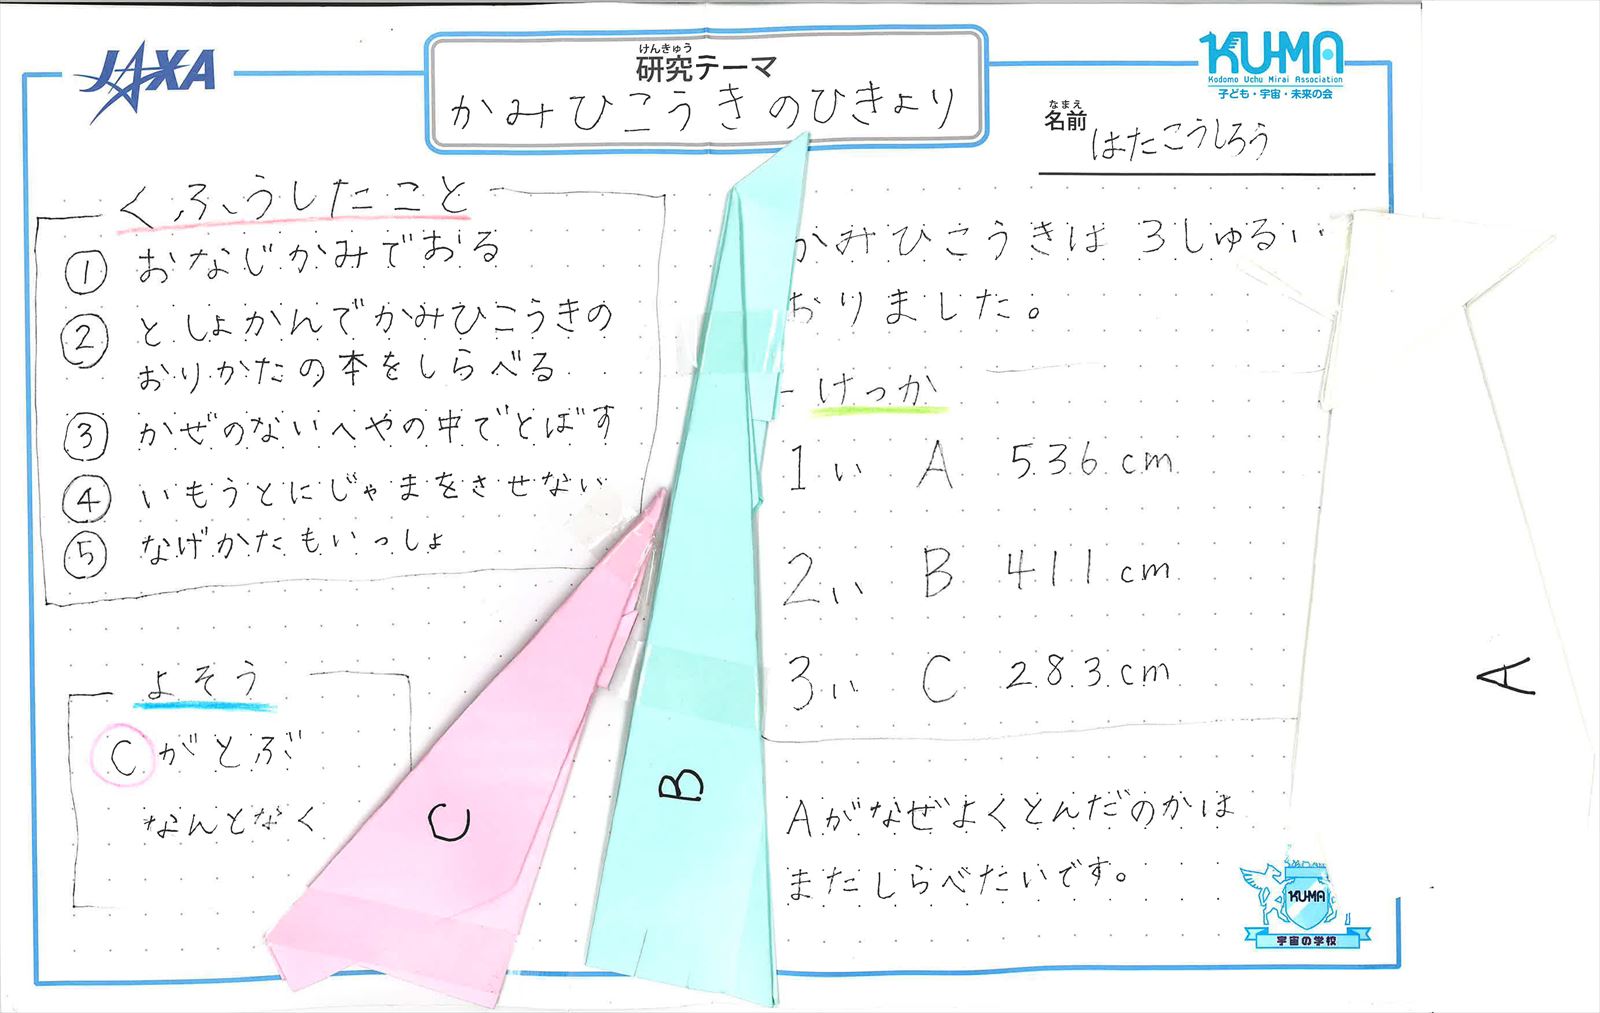 JAXA
けんきゅう
研究テーマ
かみひこうきのひきょり
KU-MA
Kodomo Uchu Mirai Association
子ども・宇宙・未来の会
なまえ
名前
はたこうしろう
くふうしたこと
① おなじかみでおる
② としょかんでかみひこうきの
おりかたの本をしらべる
③ かぜのないへやの中でとばす
④ いもうとにじゃまをさせない
⑤ なげかたもいっしょ
よそう
Cがとぶ
なんとなく
C
B
かみひこうきは3しゅるい
おりました。
けっか
1い A 536cm
2い B 411cm
3い C 283cm
Aがなぜよくとんだのかは
まだしらべたいです。
A
KU-MA
宇宙の学校